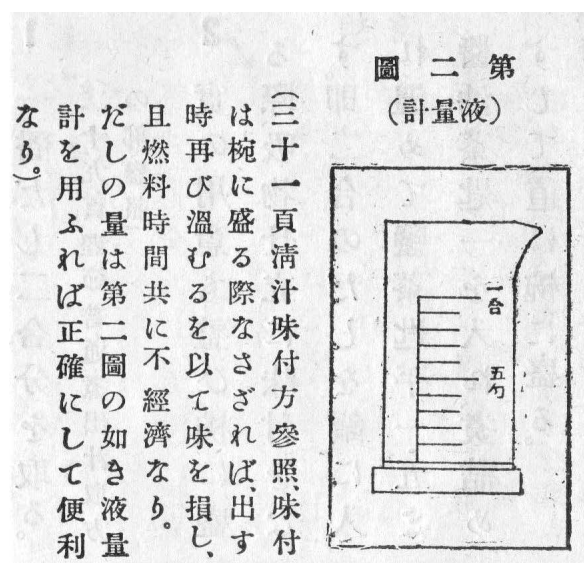 第二圖
(液量計)
一合
五勺
(三十一頁淸汁味付方參照、味付
は椀に盛る際なさざれば、出す
時再び溫むるを以て味を損し、
且燃料時間共に不經濟なり。
だしの量は第二圖の如き液量
計を用ふれば正確にして便利
なり。)